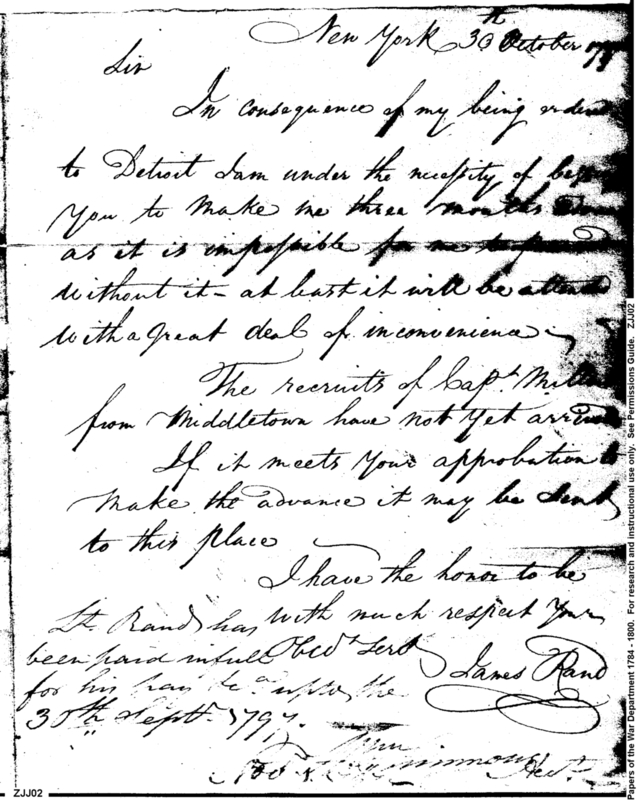 New York 30th October 1797
Sir
In consequence of my being orderd
to Detroit I am under the necessity of
You to make me three months
as it is impossible for me to proceed
without it - at least it will be attended
with a great deal of inconvenience
The recruits of Capt. Miller
from Middletown have not yet arrived
If it meets your approbation to
make the advance it may be sent
to this place
I have the honor to be
with much respect Your
Obdt Servt
James Rand
Lt. Rand has
been paid in full
for his pay &c a upto the
30th Septr. 1797.
Wm Simmons
Papers of the War Department 1784 - 1800. For research and instructional use only. See Permissions Guide. ZJJ02
ZJJ02